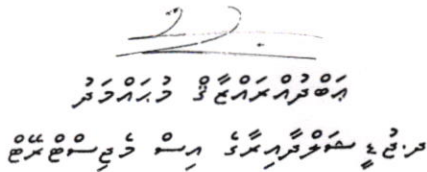 ޢަބްދުއްރައްޒާޤް މުޙައްމަދު
ދ.ޖުޑީޝަލްދާއިރާގެ އިސް މެޖިސްޓްރޭޓް